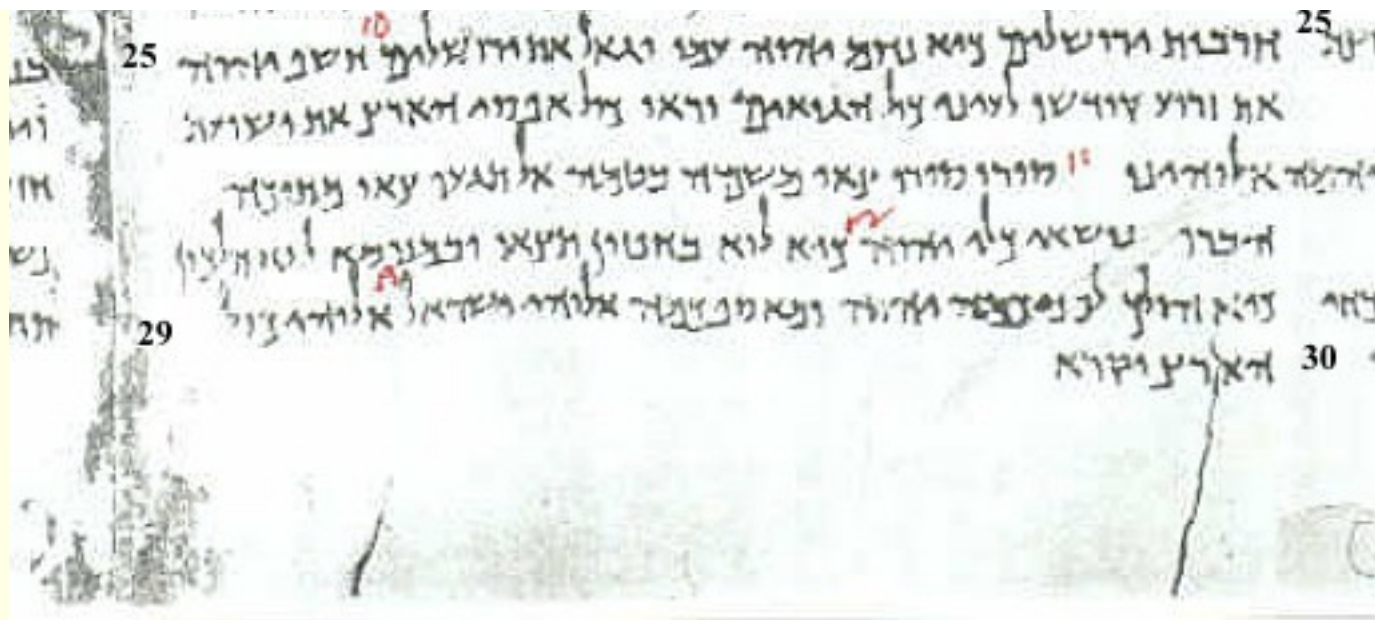 10
25 חרבות ירושלים כיא נחם יהוה עמו וגאל את ירושלים חשף יהוה 25
את זרוע קודשו לעיני כל הגואים וראו כל אפסי הארץ את ישועת
אלוהינו 11 סורו סורו צאו משמה בטמה אל תגעו צאו מתוכה
הברו נושאי כלי יהוה כיא לוא בחפזון תצאו ובמנוסה לוא תלכון
כיא הולך לפניכמה יהוה ומאספכמה אלוהי ישראל אלוהי כול 29
30 הארץ יקרא